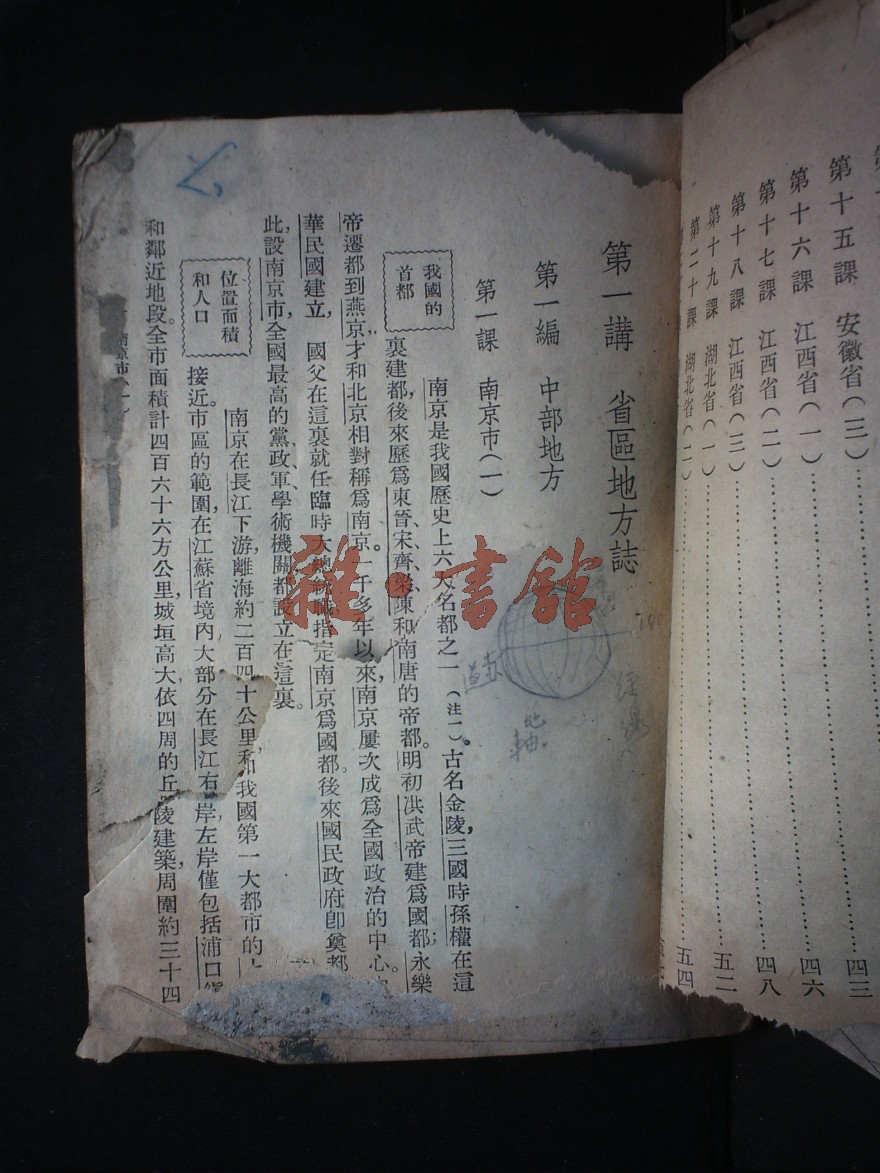 第十五課　安徽省(三)…………四三
第十六課　江西省(一)…………四六
第十七課　江西省(二)…………四八
第十八課　江西省(三)
第十九課　湖北省(一)…………五二
第二十課　湖北省(二)…………五四
第一講　省區地方誌
第一編　中部地方
第一課　南京市(一)
我國的
首都
南京是我國歷史上六大名都之一(注一)。古名金陵,三國時孫權在這
裏建都,後來歷爲東晉、宋、齊、梁、陳和南唐的帝都。明初洪武帝建爲國都;永樂
帝遷都到燕京,才和北京相對稱爲南京。一千多年以來,南京屢次成爲全國政治的中心。
華民國建立,國父在這裏就任臨時大總統職,指定南京爲國都。後來國民政府卽奠都
此,設南京市,全國最高的黨、政、軍、學術機關都設立在這裏。
位置面積
和人口
南京在長江下游,離海約二百四十公里,和我國第一大都市的上
接近。市區的範圍,在江蘇省境內,大部分在長江右岸,左岸僅包括浦口鎮
和鄰近地段。全市面積計四百六十六方公里,城垣高大,依四周的丘陵建築,周圍約三十四
南京市(一)
地軸
雜·書館